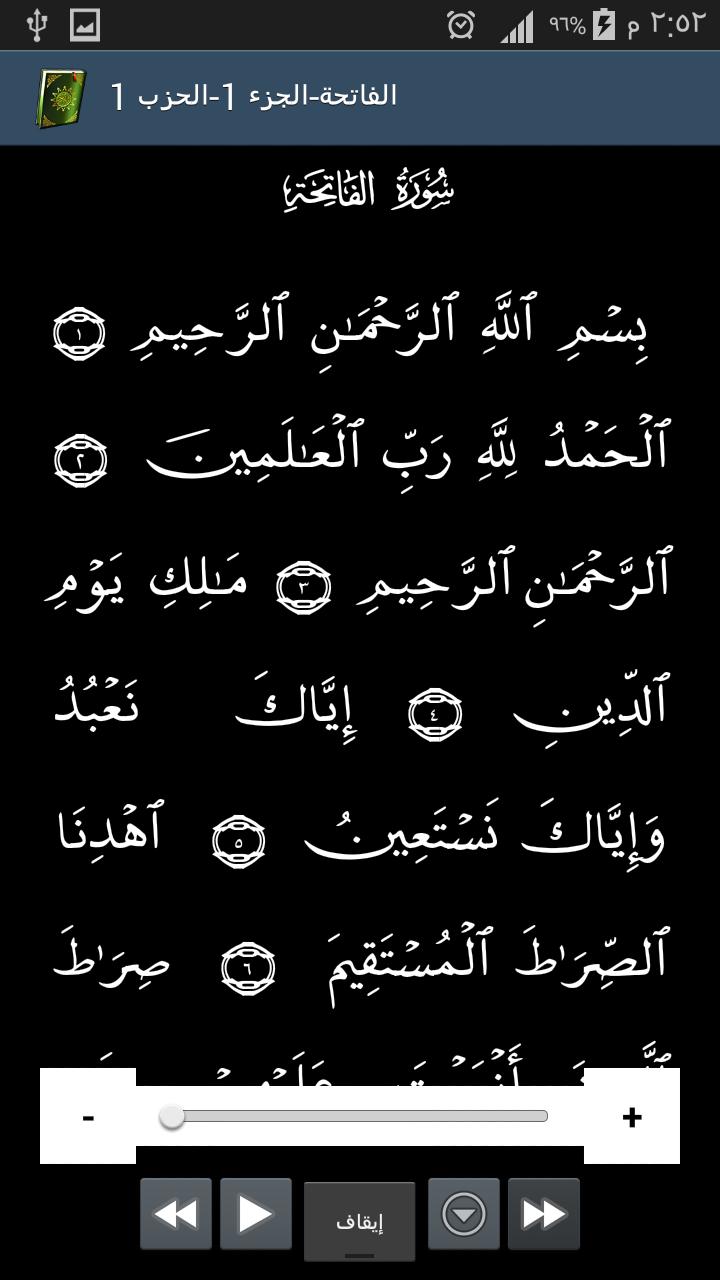 ٩٦% م ٢:٥٢
الفاتحة-الجزء 1-الحزب 1
سُورَةُ الفَاتِحَةِ
بِسۡمِ ٱللَّهِ ٱلرَّحۡمَـٰنِ ٱلرَّحِيمِ ١
ٱلۡحَمۡدُ لِلَّهِ رَبِّ ٱلۡعَـٰلَمِينَ ٢
ٱلرَّحۡمَـٰنِ ٱلرَّحِيمِ ٣ مَـٰلِكِ يَوۡمِ
ٱلدِّينِ ٤ إِيَّاكَ نَعۡبُدُ
وَإِيَّاكَ نَسۡتَعِينُ ٥ ٱهۡدِنَا
ٱلصِّرَٰطَ ٱلۡمُسۡتَقِيمَ ٦ صِرَٰطَ
- +
إيقاف